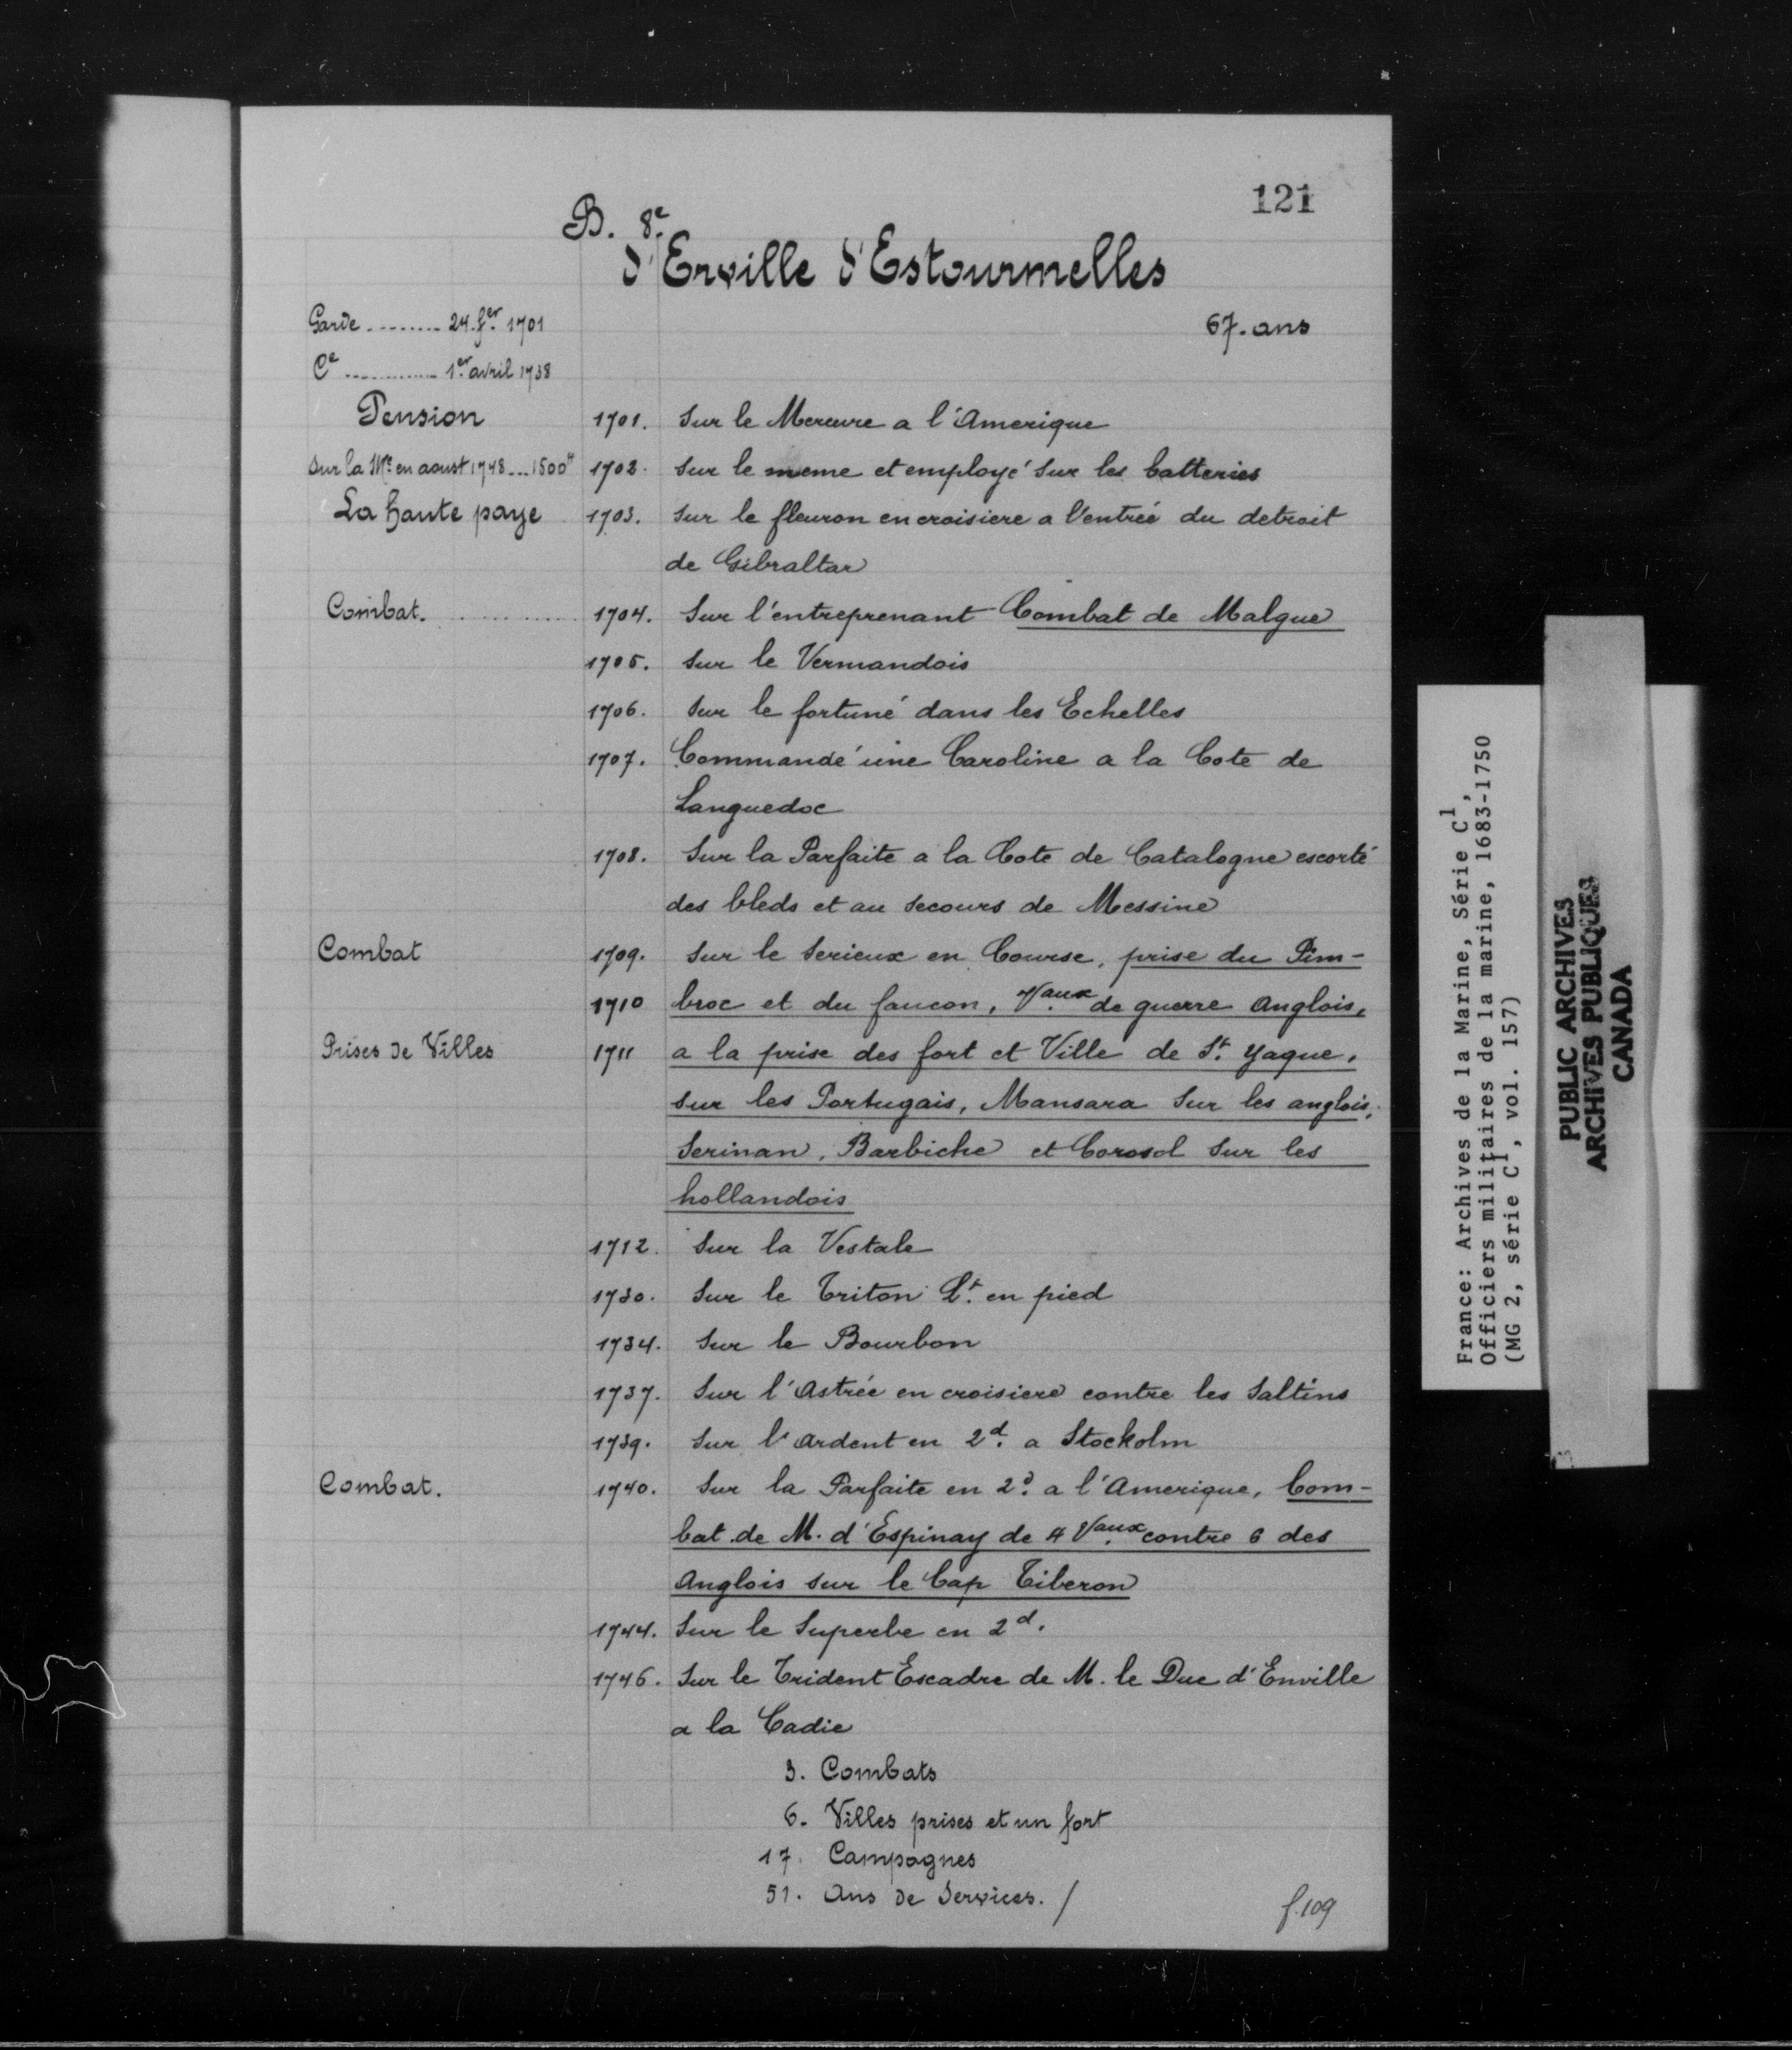 121
B. 8e.
d'Erville d'Estourmelles
Garde ......... 24. fer. 1701
67. ans
Ce ............ 1er. avril 1738
Pension
1701. Sur le Mercure a l'Amerique
Sur la Mne en aoust 1748 ... 1500tt
1702. Sur le meme et employé sur les batteries
La haute paye
1703. Sur le fleuron en croisiere a l'entrée du detroit
de Gibraltar
Combat.
1704. Sur l'entreprenant Combat de Malgue
1705. Sur le Vermandois
1706. Sur le fortuné dans les Echelles
1707. Commandé une Caroline a la Cote de
Languedoc
1708. Sur la Parfaite a la Cote de Catalogne escorté
des bleds et au secours de Messine
Combat
1709. Sur le Serieux en Course, prise du Pim-
1710 broc et du faucon, Vaux. de guerre Anglois,
Prises de Villes
1711 a la prise des fort et Ville de St. Yague,
sur les Portugais, Mansara Sur les anglois,
Serinan, Barbiche et Corosol Sur les
hollandois
1712. Sur la Vestale
1730. Sur le Triton Lt. en pied
1734. Sur le Bourbon
1737. Sur l'Astrée en croisiere contre les Saltins
1739. Sur l'Ardent en 2d. a Stockolm
Combat.
1740. Sur la Parfaite en 2d. a l'Amerique, Com-
bat de M. d'Espinay de 4 Vaux. contre 6 des
Anglois sur le Cap Tiberon
1744. Sur le Superbe en 2d.
1746. Sur le Trident Escadre de M. le Duc d'Enville
a la Cadie
3. Combats
6. Villes prises et un fort
17. Campagnes
51. Ans de Services. /
f. 109
France: Archives de la Marine, Série C1,
Officiers militaires de la marine, 1683-1750
(MG 2, série C1, vol. 157)
PUBLIC ARCHIVES
ARCHIVES PUBLIQUES
CANADA